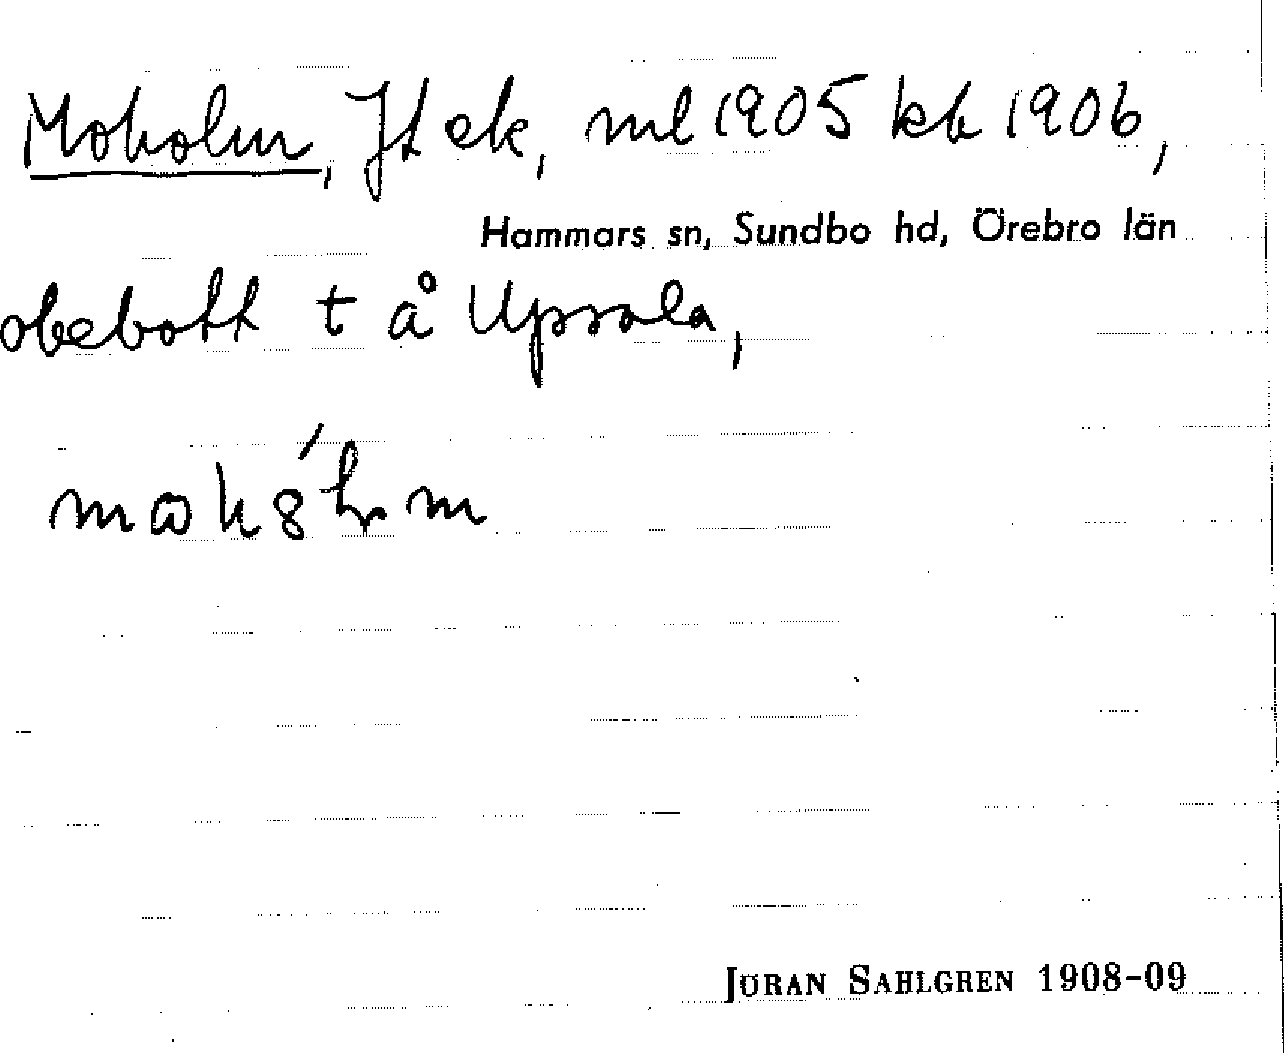 Moholm, Jl ek, ml 1905 kb 1906,
Hammars sn, Sundbo hd, Örebro län
obebott t å Upsala,
JÖRAN SAHLGREN 1908-09